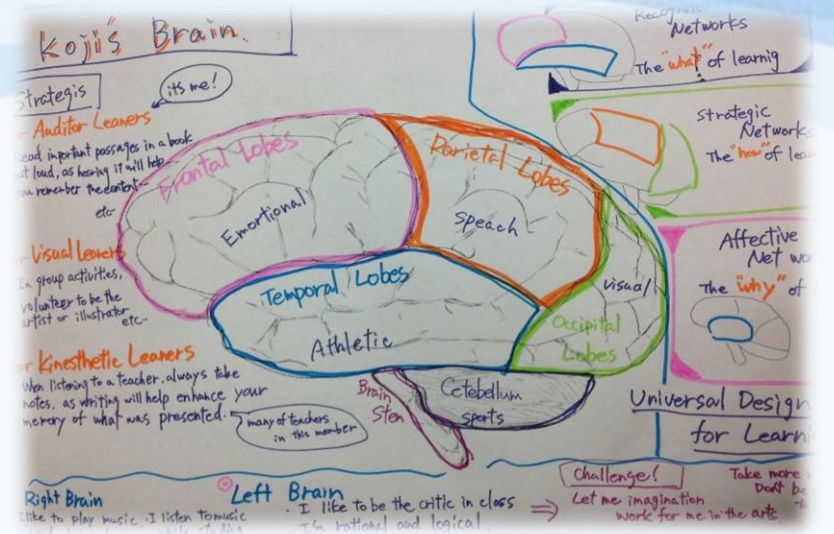 Koji's Brain.
Strategis
it's me!
r Auditor Leaners
Read inportant passages in a book
out loud, as hearing it will help
you remember the content...
etc
r Visual Leaners
In group activities,
volunteer to be the
artist or illustrator
etc...
r Kinesthetic Leaners
When listening to a teacher, always take
notes, as writing will help enhance your
memory of what was presented.
many of teachers
in this member
Frontal Lobes
Emortional
Parietal Lobes
Speach
Temporal Lobes
Athletic
visual
Occipital
Lobes
Brain
Sten
Cetebellum
sports
Networks
The "what" of learnig
Strategic
Networks
The "how" of lea
Affective
Net wo
The "why" of
Universal Design
for Learni
Right Brain
I like to play music. I listen to music
Left Brain
· I like to be the critic in class
· I'm rational and logical
Challenge!
Let me imagination
work for me in the arts.
Take more
Dont be